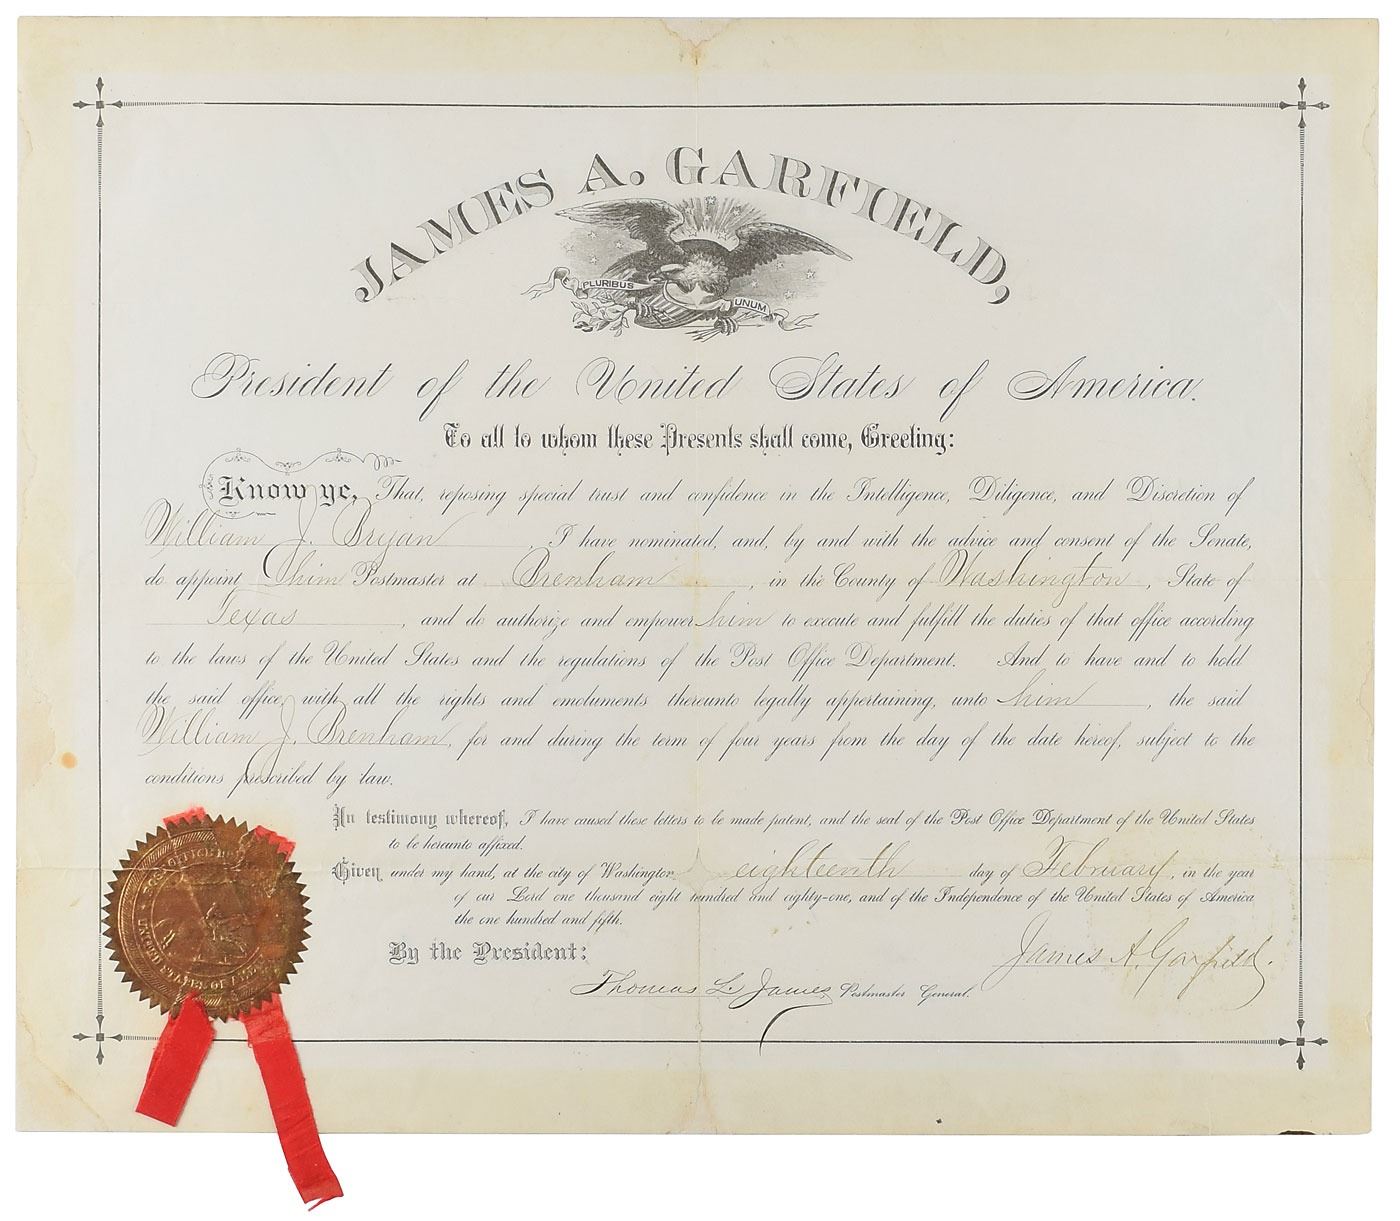 JAMES A. GARFIELD,
PLURIBUS UNUM
President of the United States of America.
To all to whom these Presents shall come, Greeting:
Know ye, That, reposing special trust and confidence in the Intelligence, Diligence, and Discretion of
William J. Bryan, I have nominated, and, by and with the advice and consent of the Senate,
do appoint him Postmaster at Brenham, in the County of Washington, State of
Texas, and do authorize and empower him to execute and fulfill the duties of that office according
to the laws of the United States and the regulations of the Post Office Department. And to have and to hold
the said office, with all the rights and emoluments thereunto legally appertaining, unto him, the said
William J. Brenham, for and during the term of four years from the day of the date hereof, subject to the
conditions prescribed by law.
In testimony whereof, I have caused these letters to be made patent, and the seal of the Post Office Department of the United States
to be hereunto affixed.
Given under my hand, at the city of Washington, eighteenth day of February, in the year
of our Lord one thousand eight hundred and eighty-one, and of the Independence of the United States of America
the one hundred and fifth.
By the President:
James A. Garfield.
Thomas L. James Postmaster General.
POST OFFICE
UNITED STATES OF